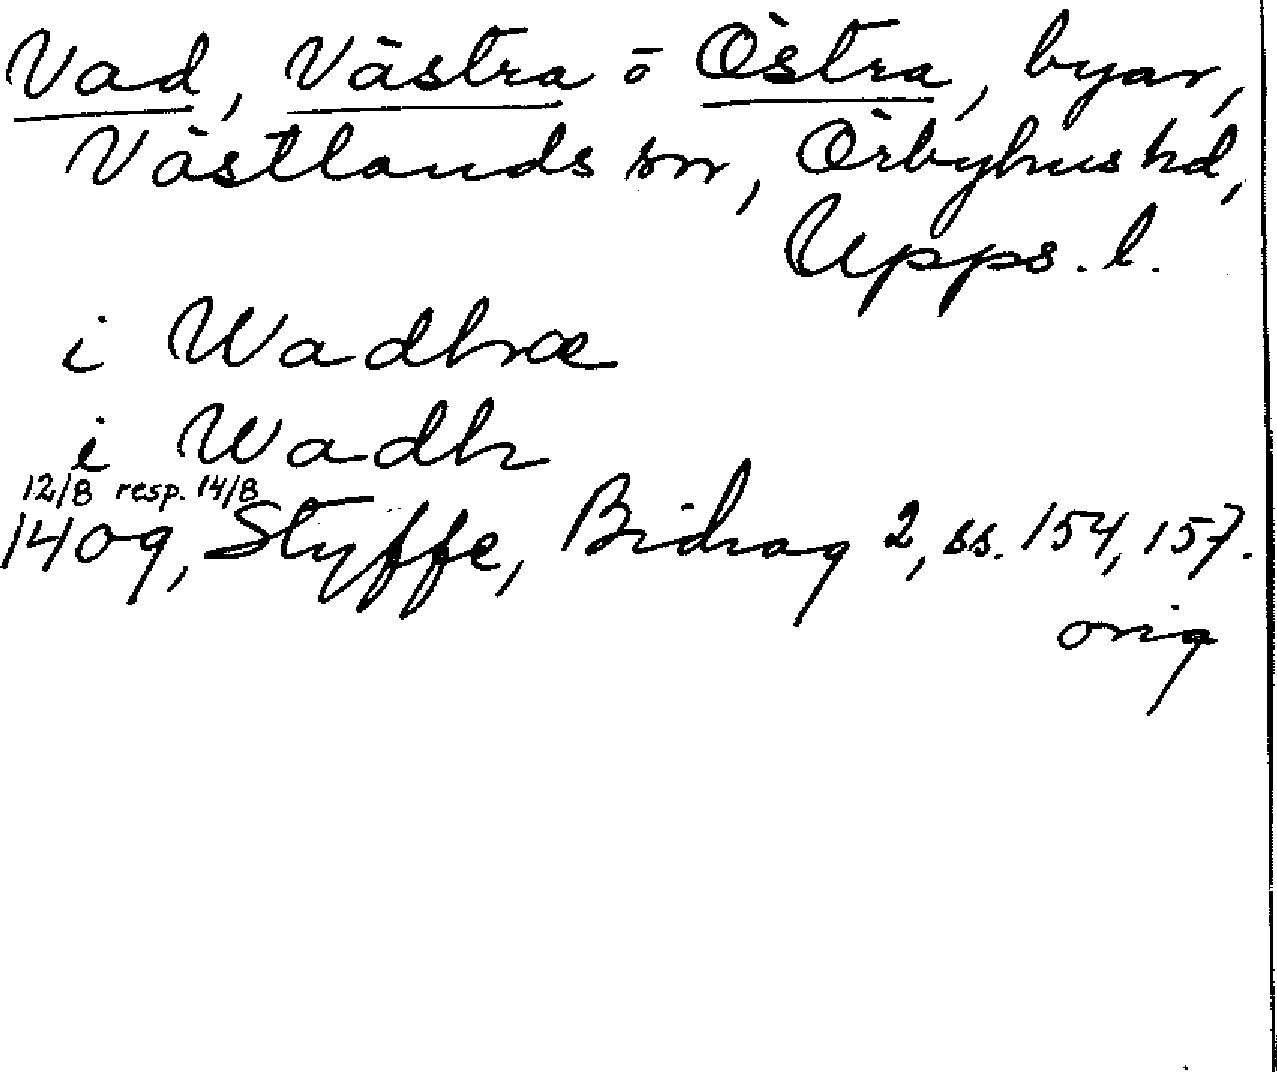 Vad, Västra o Östra, byar,
Västlands sn, Örbyhus hd,
Upps. l.
i Wadhræ
i Wadh
12/8 resp. 14/8
1409, Styffe, Bidrag 2, ss. 154, 157.
orig